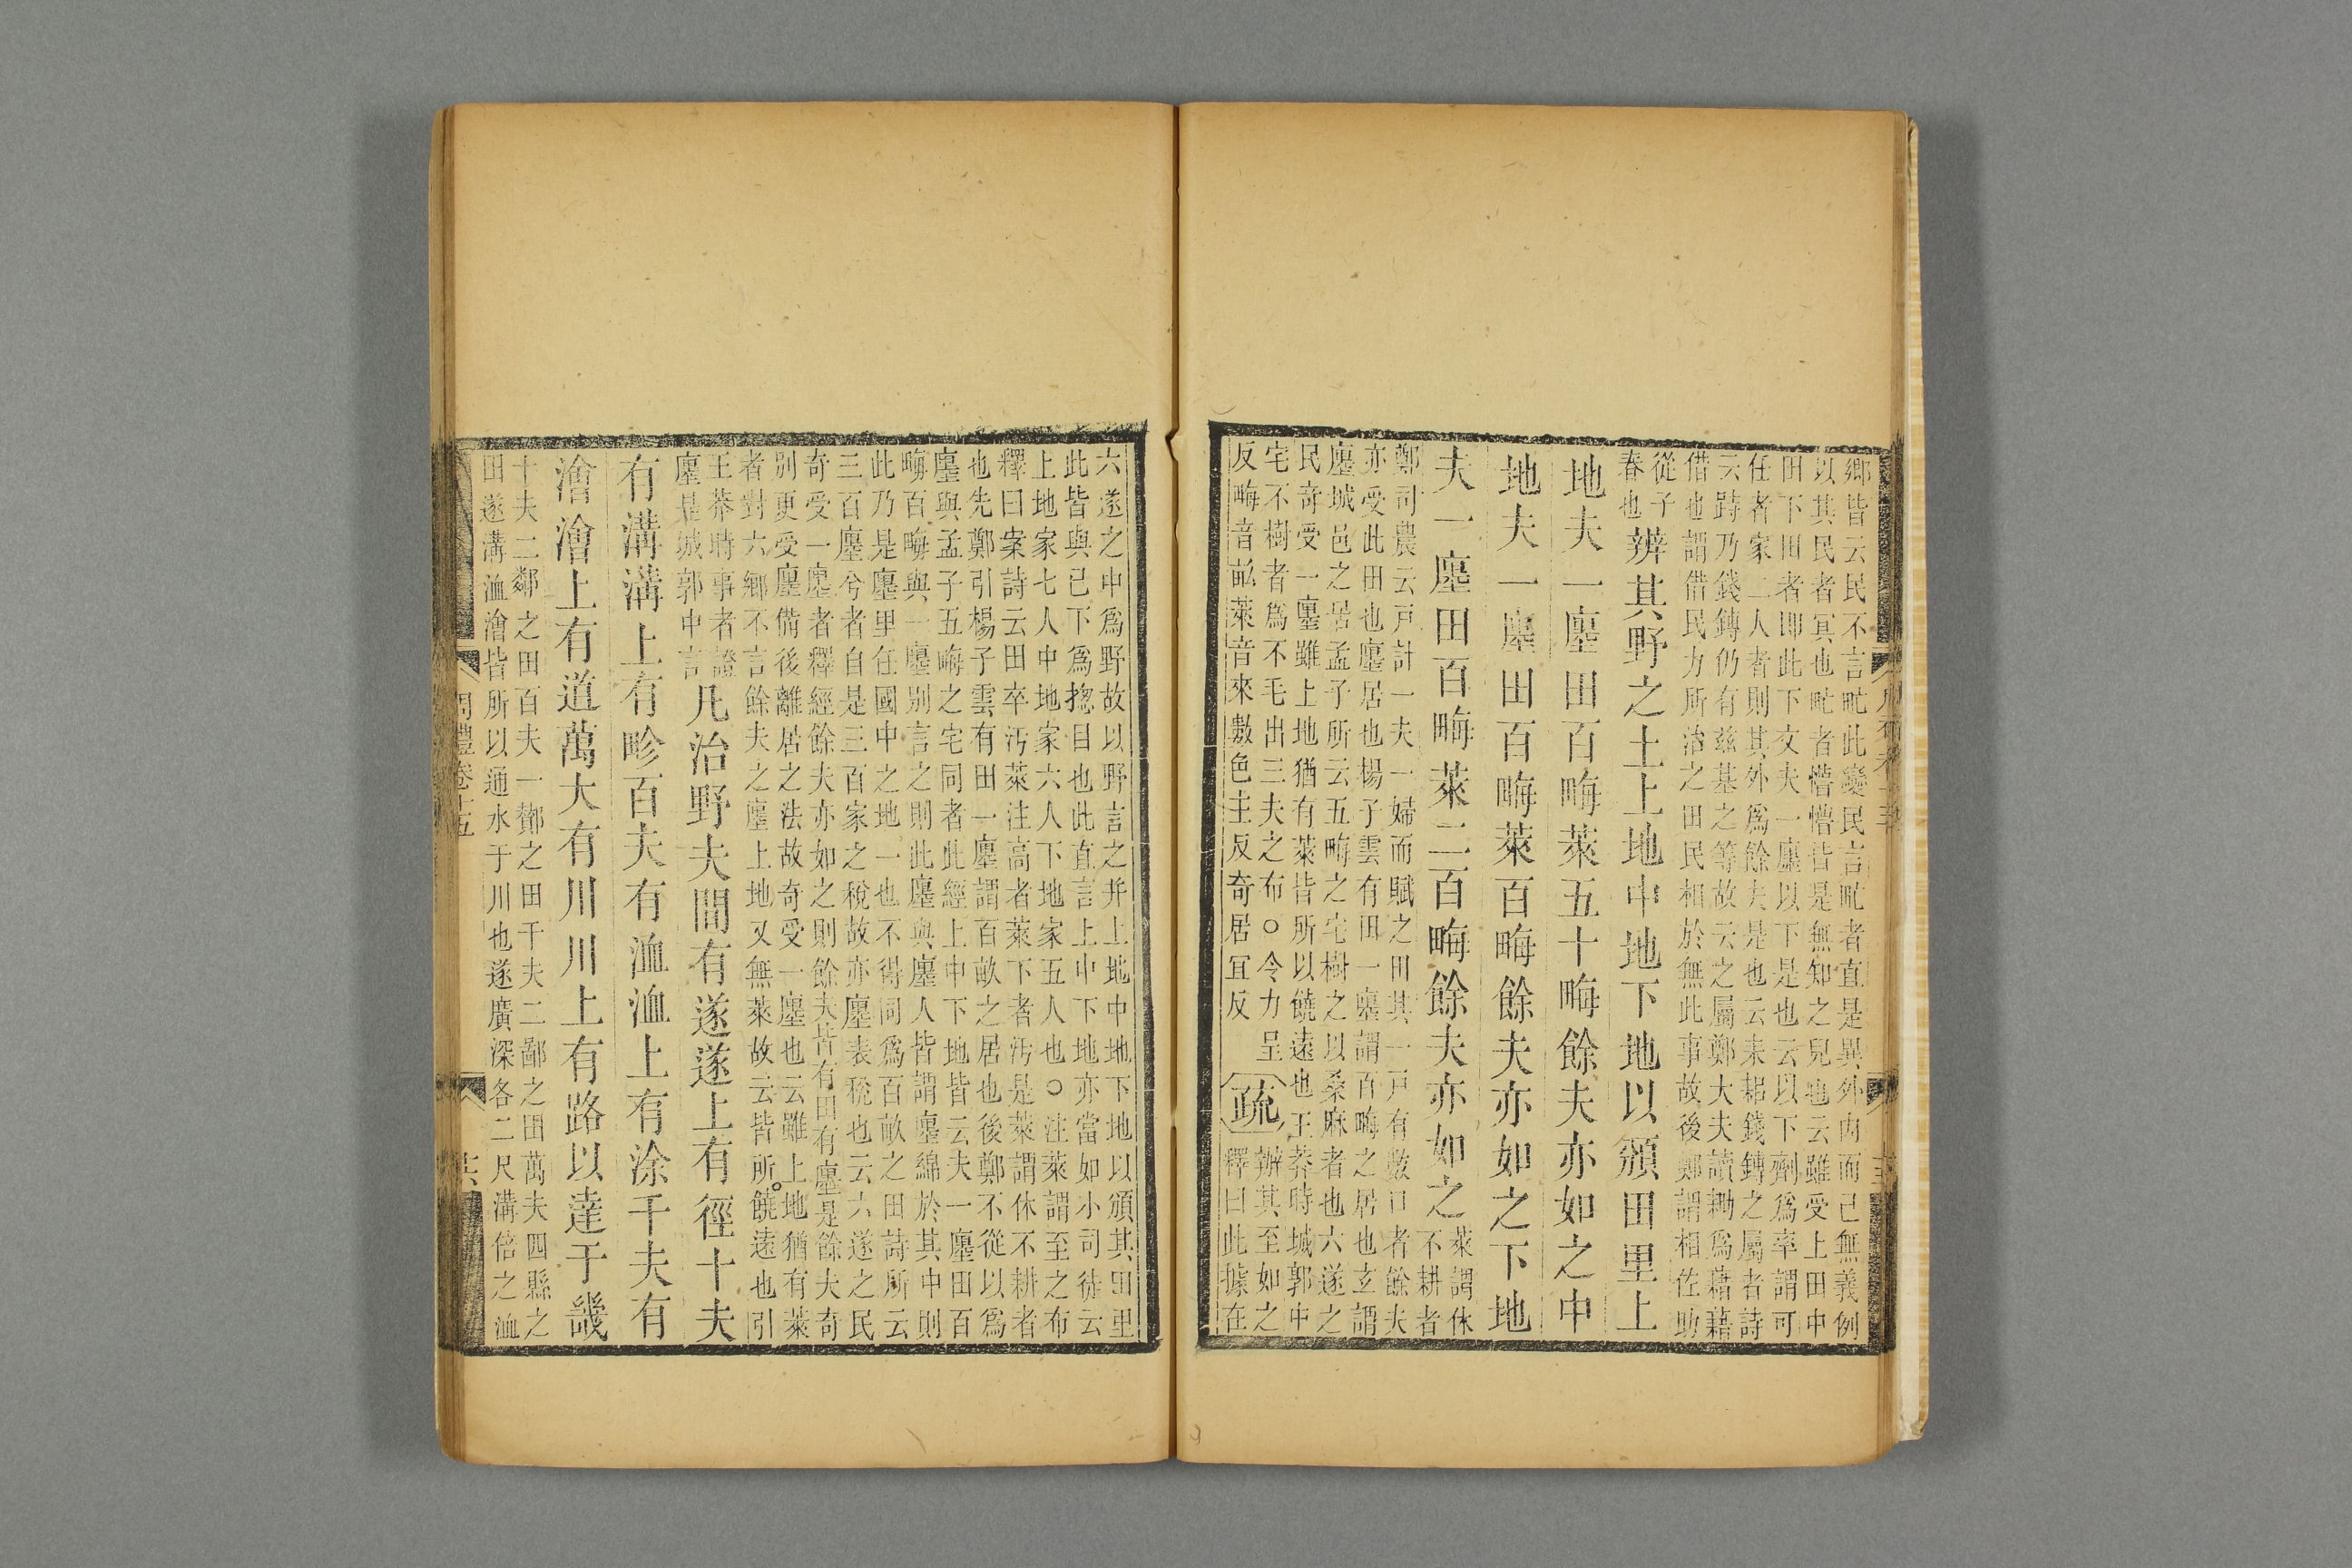 鄉皆云民不言甿此變民言甿者直是異外內而已無義例
以其民者冥也甿者懵懵皆是無知之皃也云雖受上田中
田下田者即此下文夫一廛以下是也云以下劑爲率謂可
任者家二人者則其外爲餘夫是也云耒耜錢鎛之屬者詩
云踌乃錢鎛仍有兹基之等故云之屬鄭大夫讀耡爲藉藉
借也謂借民力所治之田民相於無此事故後鄭謂相佐助
從子
春也
辨其野之土上地中地下地以頒田里上
地夫一廛田百畮萊五十畮餘夫亦如之中
地夫一廛田百畮萊百畮餘夫亦如之下地
夫一廛田百畮萊二百畮餘夫亦如之
萊謂休
不耕者
鄭司農云戸計一夫一婦而賦之田其一戸有數口者餘夫
亦受此田也廛居也楊子雲有田一廛謂百畮之居也玄謂
廛城邑之居孟子所云五畮之宅樹之以桑麻者也六遂之
民奇受一廛雖上地猶有萊皆所以饒遠也王莽時城郭中
宅不樹者爲不毛出三夫之布○令力呈
反畮音畝萊音來數色主反奇居宜反
疏
辨其至如之
釋曰此據在
六遂之中爲野故以野言之并上地中地下地以頒其田里
此皆與已下爲揔目也此直言上中下地亦當如小司徒云
上地家七人中地家六人下地家五人也○注萊謂至之布
釋曰案詩云田卒汙萊注高者萊下者汙是萊謂休不耕者
也先鄭引楊子雲有田一廛謂百畝之居也後鄭不從以爲
廛與孟子五畮之宅同者此經上中下地皆云夫一廛田百
畮百畮與一廛别言之則此廛與廛人皆謂廛綿於其中則
此乃是廛里任國中之地一也不得同爲百畝之田詩所云
三百廛兮者自是三百家之稅故亦廛表稅也云六遂之民
奇受一廛者釋經餘夫亦如之則餘夫皆有田有廛是餘夫奇
别更受廛備後離居之法故奇受一廛也云雖上地猶有萊
者對六鄉不言餘夫之廛上地又無萊故云皆所饒遠也引
王莽時事者證
廛是城郭中言
凡治野夫間有遂遂上有徑十夫
有溝溝上有畛百夫有洫洫上有涂千夫有
澮澮上有道萬夫有川川上有路以達于畿
十夫二鄰之田百夫一酇之田千夫二鄙之田萬夫四縣之
田遂溝洫澮皆所以通水于川也遂廣深各二尺溝倍之洫
周禮卷十五